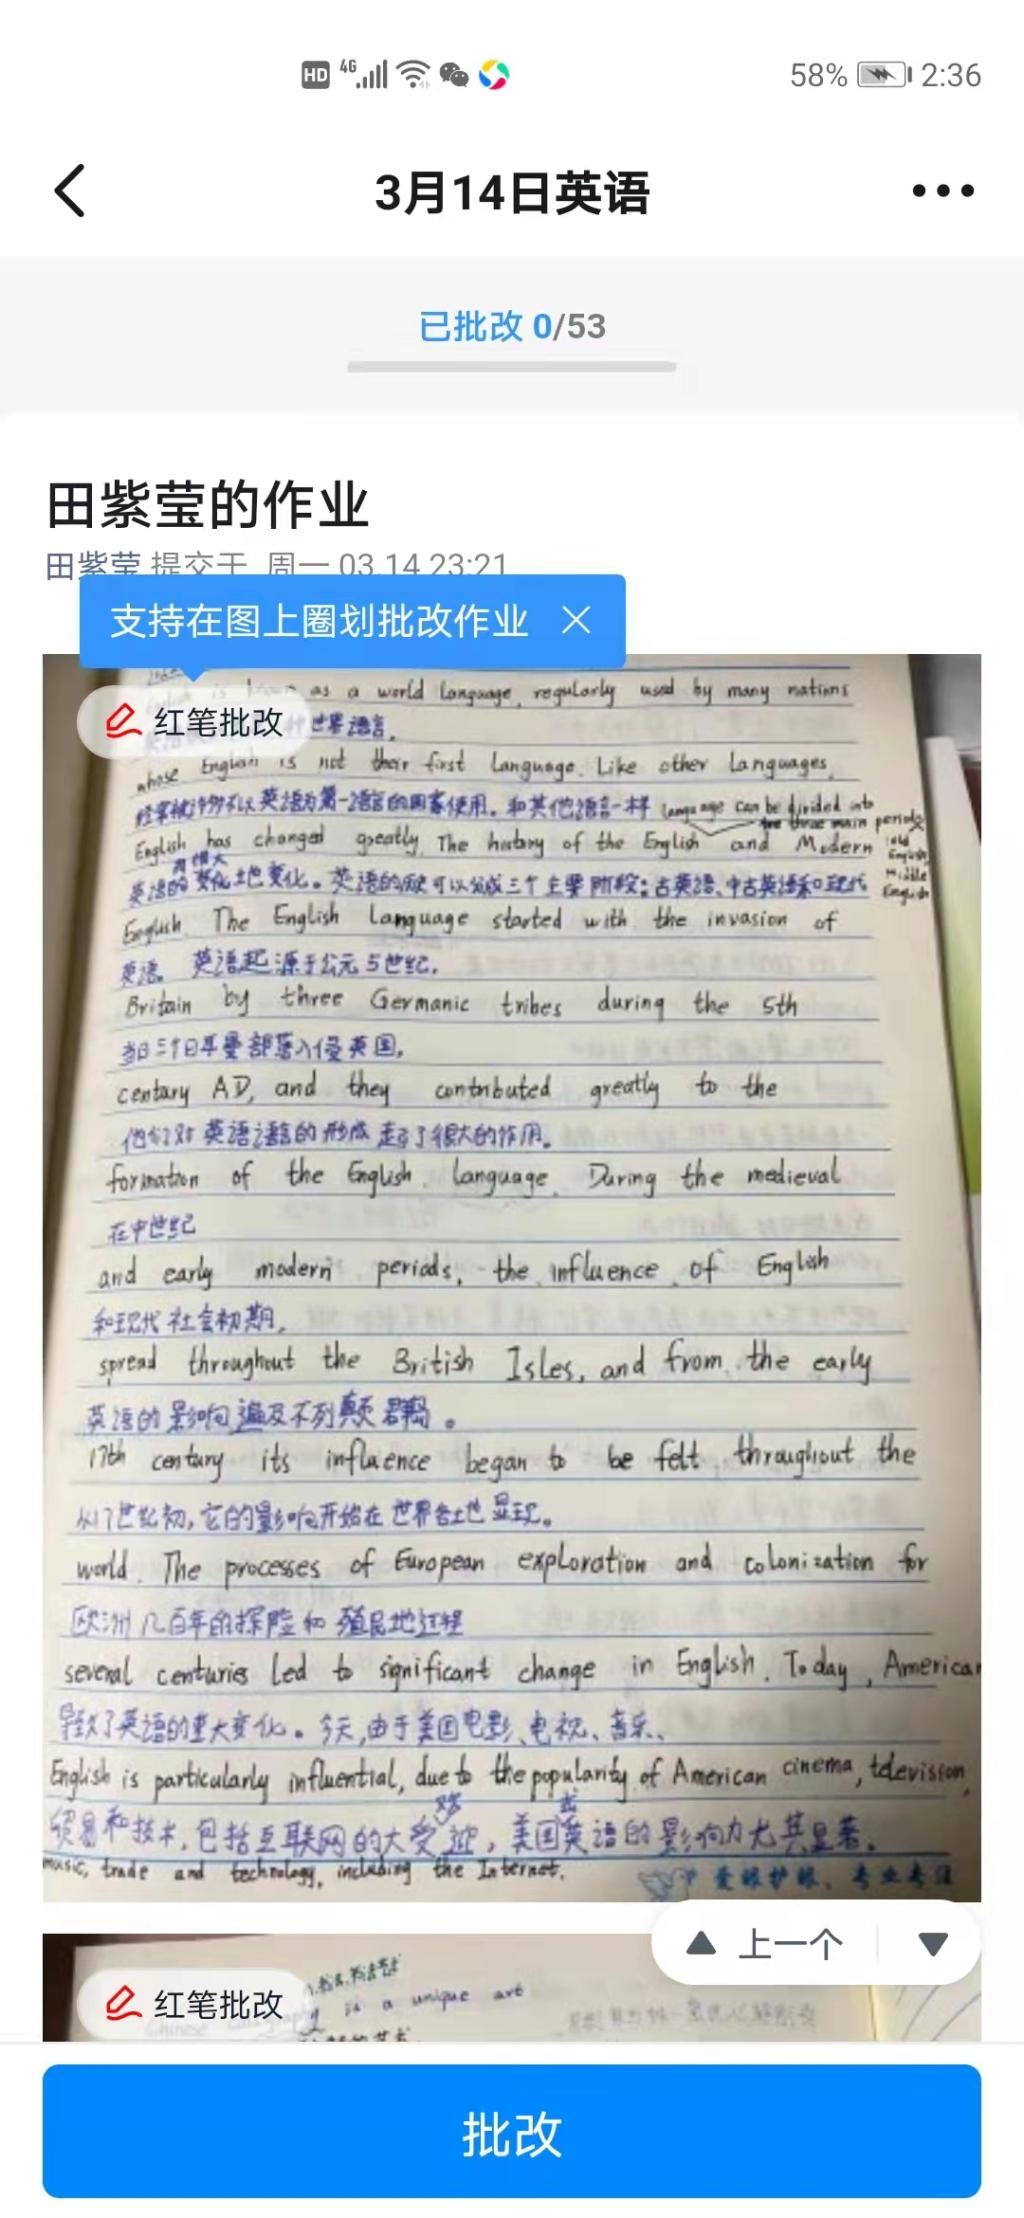 HD 4G 58% 2:36
3月14日英语
已批改 0/53
田紫莹的作业
田紫莹 提交于 周一 03.14 23:21
支持在图上圈划批改作业
红笔批改
English is known as a world language, regularly used by many nations
世界语言。
whose English is not their first language. Like other languages,
经常被许多不以英语为第一语言的国家使用。和其他语言一样 language can be divided into
the three main periods
English has changed greatly. The history of the English and Modern
old English, Middle English
有很大
英语的变化土也变化。英语的历史可以分成三个主要阶段:古英语、中古英语和现代
English. The English language started with the invasion of
英语。 英语起源于公元5世纪,
Britain by three Germanic tribes during the 5th
当时三个日耳曼部落入侵英国,
century AD, and they contributed greatly to the
他们对英语语言的形成起了很大的作用。
formation of the English language. During the medieval
在中世纪
and early modern periods, the influence of English
和现代社会初期,
spread throughout the British Isles, and from the early
英语的影响遍及不列颠群岛。
17th century its influence began to be felt throughout the
从17世纪初,它的影响开始在世界各地显现。
world. The processes of European exploration and colonization for
欧洲几百年的探险和殖民地过程
several centuries led to significant change in English. Today, American
导致了英语的重大变化。今天,由于美国电影、电视、音乐、
English is particularly influential, due to the popularity of American cinema, television,
贸易和技术,包括互联网的大受欢迎,美国式英语的影响力尤其显著。
music, trade and technology, including the Internet.
爱眼护眼、专业专注
上一个
红笔批改
is a unique art
批改